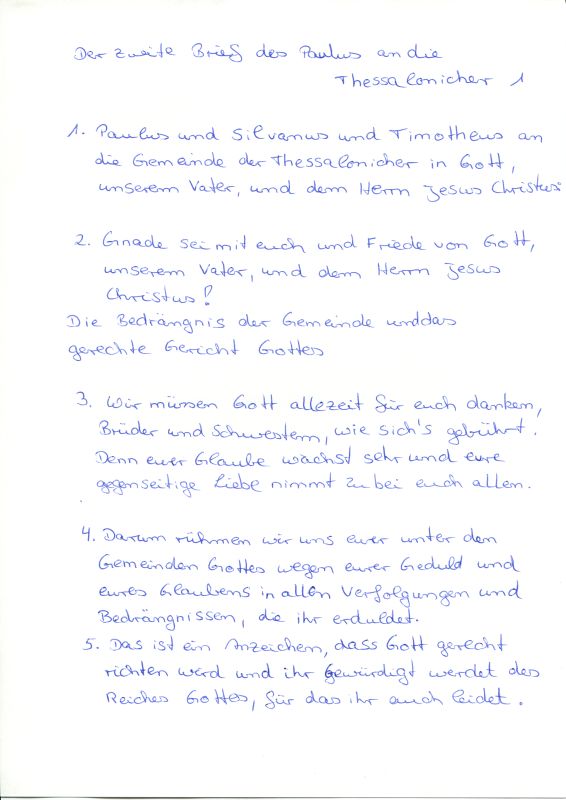 Der zweite Brief des Paulus an die
Thessalonicher 1
1. Paulus und Silvanus und Timotheus an
die Gemeinde der Thessalonicher in Gott,
unserem Vater, und dem Herrn Jesus Christus:
2. Gnade sei mit euch und Friede von Gott,
unserem Vater, und dem Herrn Jesus
Christus!
Die Bedrängnis der Gemeinde und das
gerechte Gericht Gottes
3. Wir müssen Gott allezeit für euch danken,
Brüder und Schwestern, wie sich's gebührt.
Denn euer Glaube wächst sehr und eure
gegenseitige Liebe nimmt zu bei euch allen.
4. Darum rühmen wir uns euer unter den
Gemeinden Gottes wegen eurer Geduld und
eures Glaubens in allen Verfolgungen und
Bedrängnissen, die ihr erduldet.
5. Das ist ein Anzeichen, dass Gott gerecht
richten wird und ihr gewürdigt werdet des
Reiches Gottes, für das ihr auch leidet.